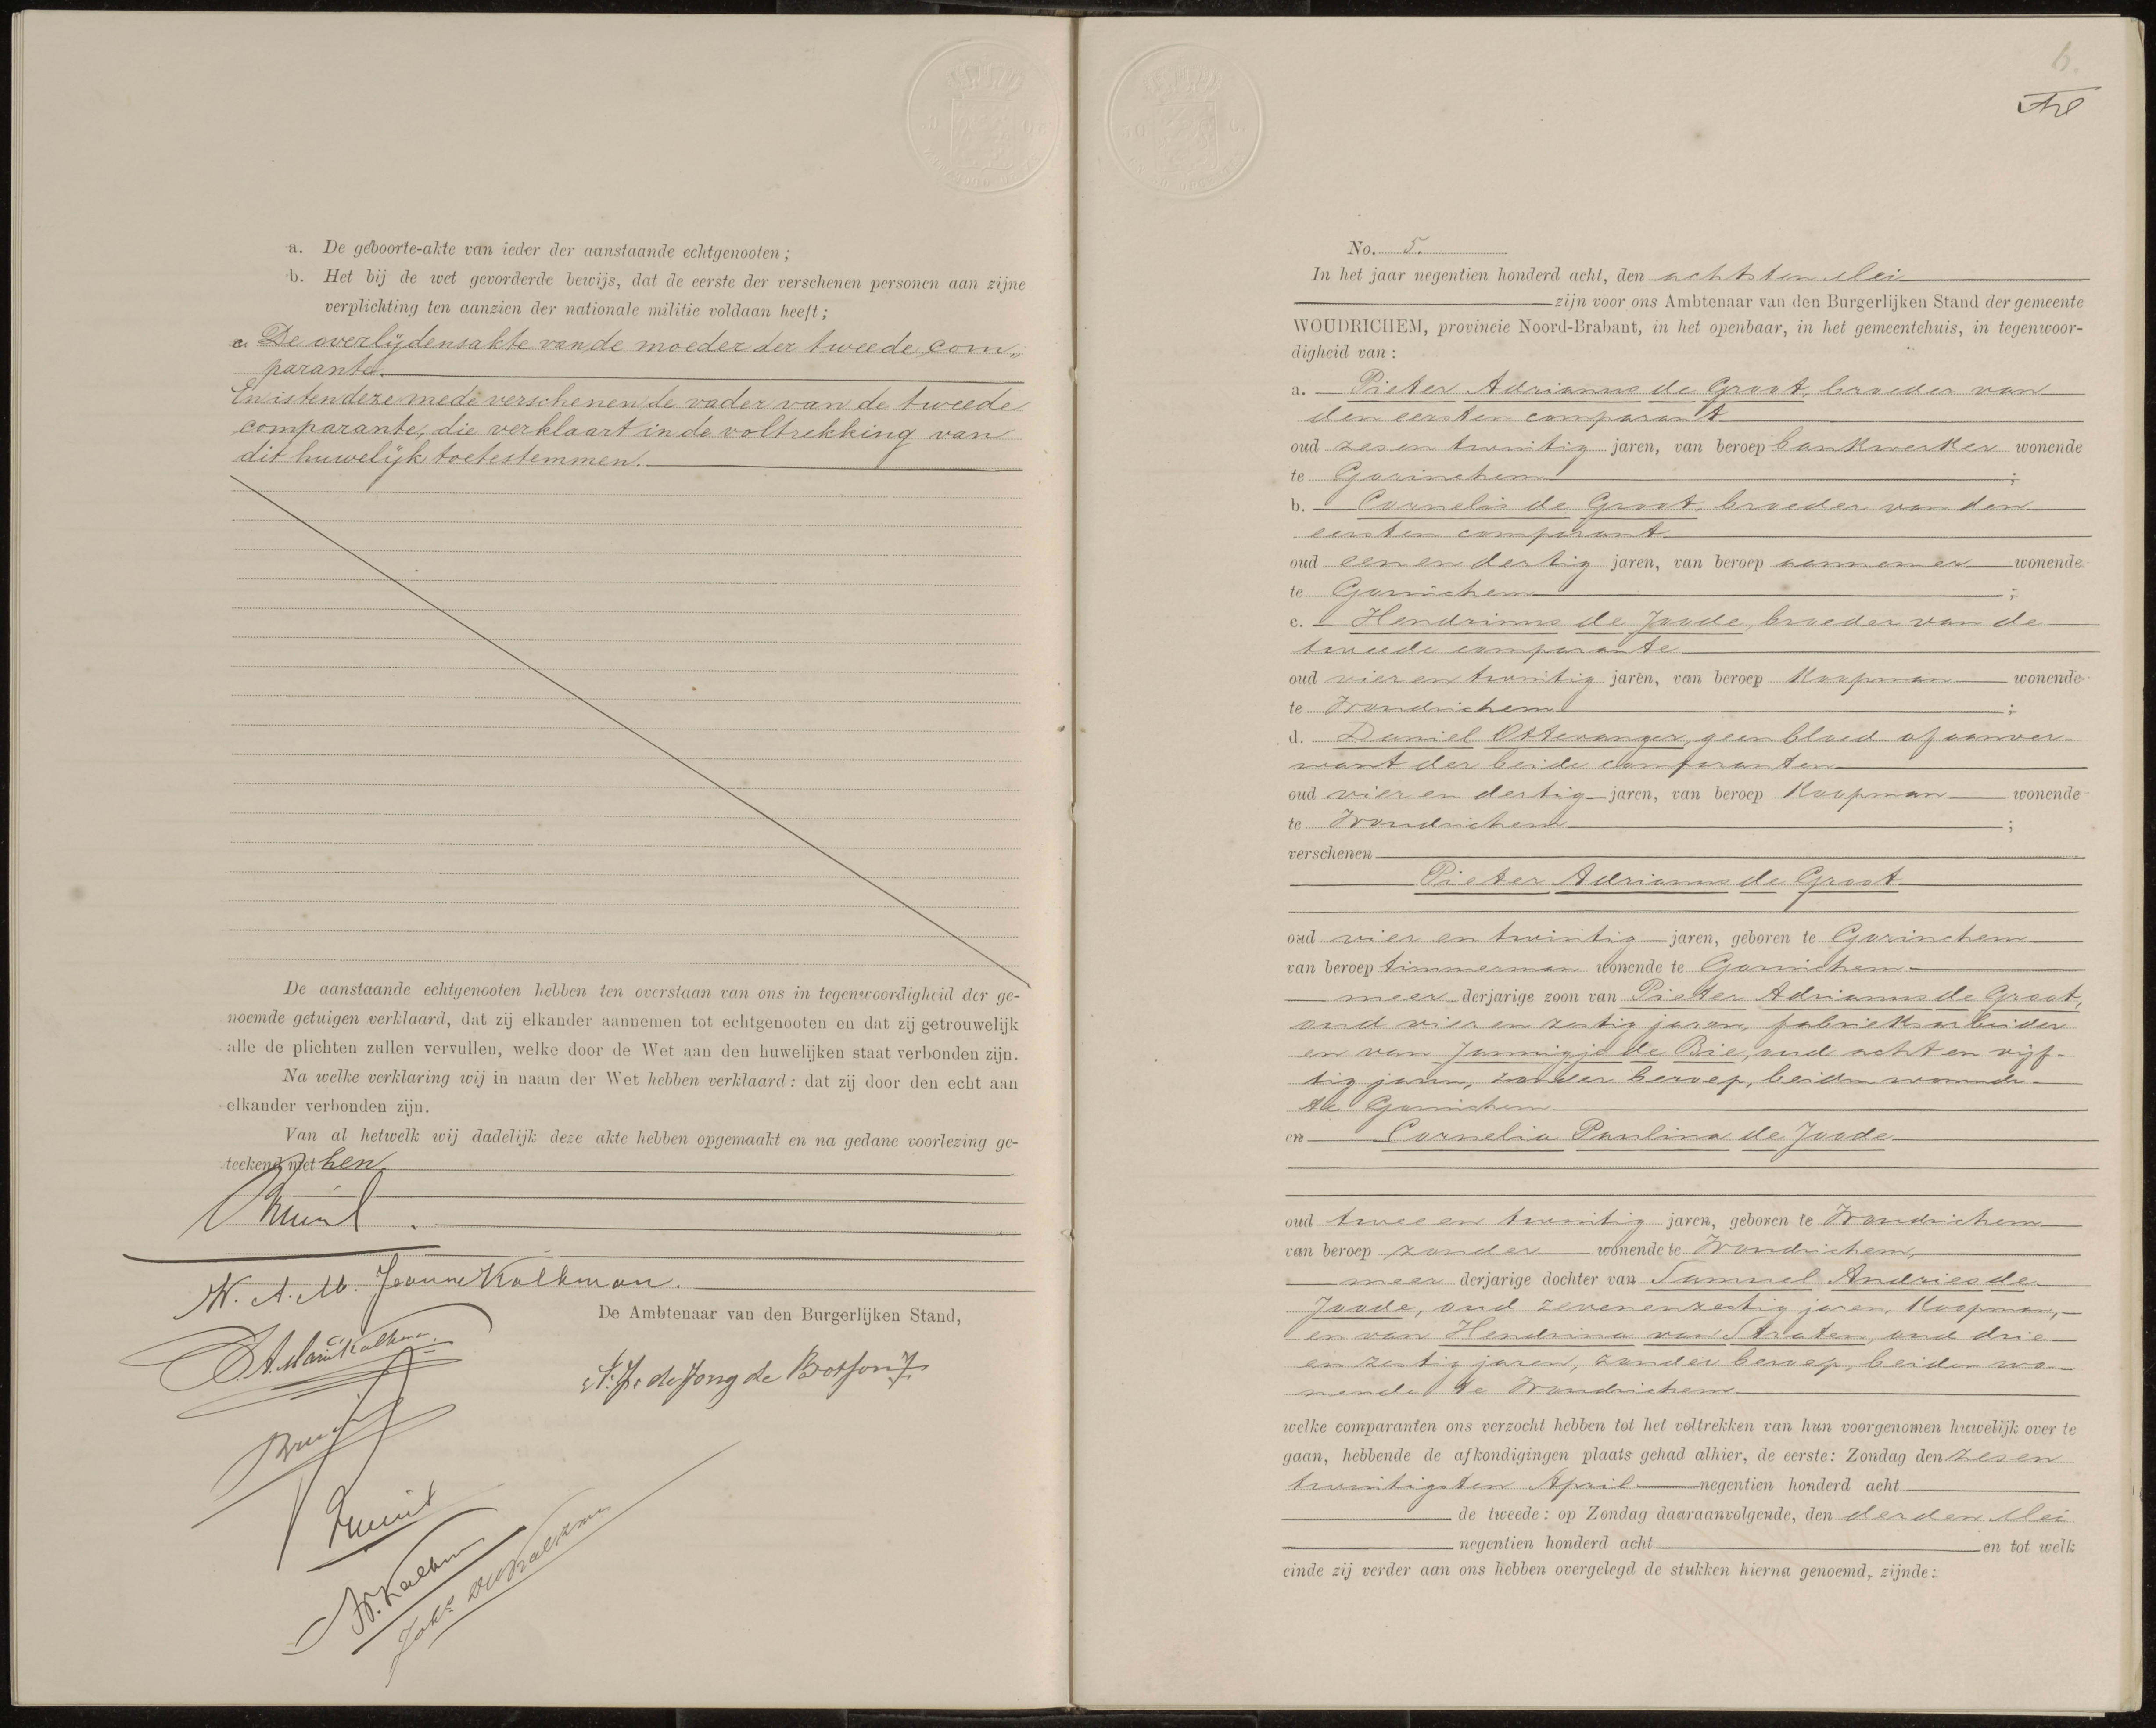 a. De geboorte-akte van ieder der aanstaande echtgenooten;
b. Het bij de wet gevorderde bewijs, dat de eerste der verschenen personen aan zijne
verplichting ten aanzien der nationale militie voldaan heeft;
c. De overlijdensakte van de moeder der tweede com„
parante.
En is ten deze mede verschenen de vader van de tweede
comparante, die verklaart in de voltrekking van
dit huwelijk toetestemmen.
De aanstaande echtgenooten hebben ten overstaan van ons in tegenwoordigheid der ge-
noemde getuigen verklaard, dat zij elkander aannemen tot echtgenooten en dat zij getrouwelijk
alle de plichten zullen vervullen, welke door de Wet aan den huwelijken staat verbonden zijn.
Na welke verklaring wij in naam der Wet hebben verklaard: dat zij door den echt aan
elkander verbonden zijn.
Van al hetwelk wij dadelijk deze akte hebben opgemaakt en na gedane voorlezing ge-
teekend met hen.
W. A. M. Jeanne Kalkman.
De Ambtenaar van den Burgerlijken Stand,
de Jong de
W. Kalkman
Kalkman
6.
No. 5.
In het jaar negentien honderd acht, den achtsten Mei
zijn voor ons Ambtenaar van den Burgerlijken Stand der gemeente
WOUDRICHEM, provincie Noord-Brabant, in het openbaar, in het gemeentehuis, in tegenwoor-
digheid van:
a. Pieter Adrianus de Groot, broeder van
den eersten comparant
oud zesen twintig jaren, van beroep bankwerker wonende
te Gorinchem ;
b. Cornelis de Groot, broeder van den
eersten comparant.
oud een en dertig jaren, van beroep aannemer wonende
te Gorinchem ;
c. Hendrinus de Joode, broeder van de
tweede comparante
oud vier en twintig jaren, van beroep Koopman wonende
te Woudrichem ;
d. Daniel Ottevanger, geen bloed- of aanver-
want der beide comparanten
oud vier en dertig jaren, van beroep Koopman wonende
te Woudrichem ;
verschenen
Pieter Adrianus de Groot
oud vier en twintig jaren, geboren te Gorinchem
van beroep timmerman wonende te Gorinchem
meer derjarige zoon van Pieter Adrianus de Groot,
oud vier en zestig jaren, fabrieksarbeider
en van Jannigje de Bie, oud acht en vijf-
tig jaren, zonder beroep, beiden wonende
te Gorinchem
en Cornelia Paulina de Joode
oud twee en twintig jaren, geboren te Woudrichem
van beroep zonder wonende te Woudrichem,
meer derjarige dochter van Samuel Andries de
Joode, oud zevenenzestig jaren, Koopman,
en van Hendrina van Straten, oud drie
en zestig jaren, zonder beroep, beiden wo-
nende te Woudrichem
welke comparanten ons verzocht hebben tot het voltrekken van hun voorgenomen huwelijk over te
gaan, hebbende de afkondigingen plaats gehad alhier, de eerste: Zondag den zesen
twintigsten April negentien honderd acht
de tweede: op Zondag daaraanvolgende, den derden Mei
negentien honderd acht en tot welk
einde zij verder aan ons hebben overgelegd de stukken hierna genoemd, zijnde: